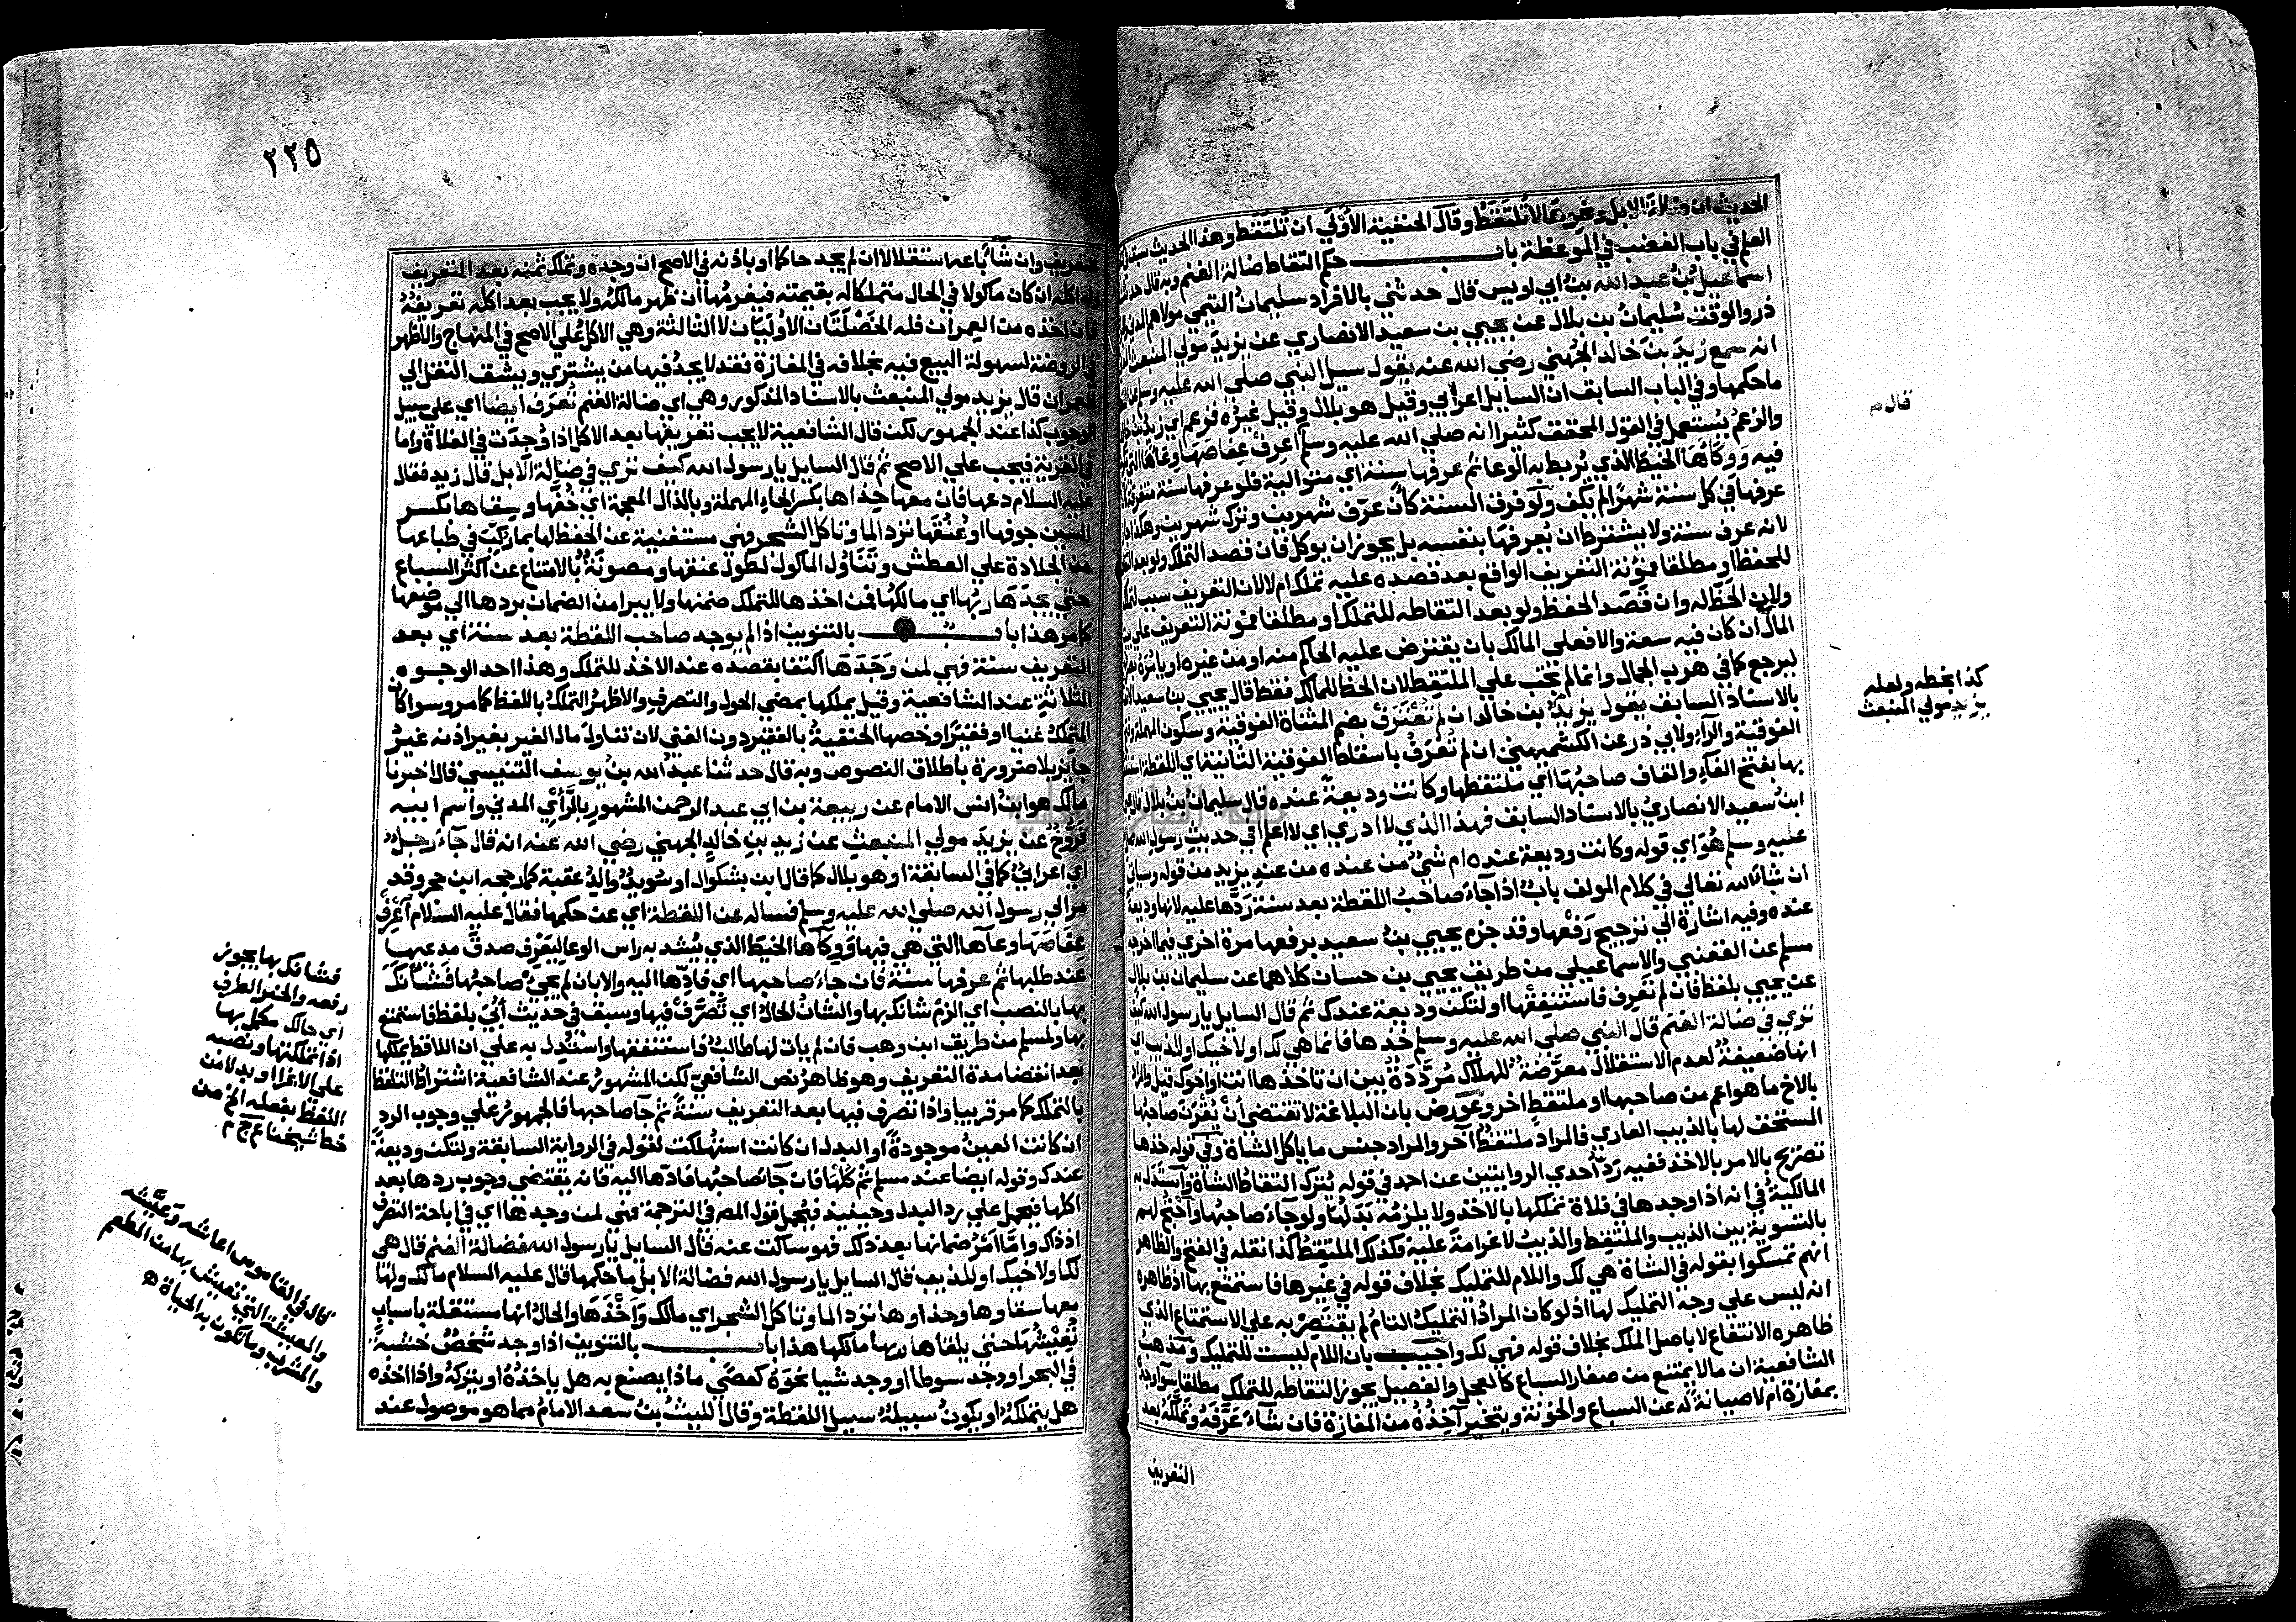 الحديث ان ضالة الابل ونحوها لا تلتقط وقال الحنفية الاولي ان تلتقط وهذا الحديث سبق في
العلم في باب الغضب في الموعظة باب حكم التقاط ضالة الغنم وبه قال حدثنا
اسماعيل بن عبد الله بن ابي اويس قال حدثني بالافراد سليمان التيمي مولاهم المدني
ذر والوقت سليمان بن بلال عن يحيي بن سعيد الانصاري عن يزيد مولي المنبعث
انه سمع زيد بن خالد الجهني رضي الله عنه يقول سيل النبي صلي الله عليه وسلم عن
ما حكمها وفي الباب السابق ان السايل اعرابي وقيل هو بلال وقيل غيره فزعم اي زيد بن
والزعم يستعمل في القول المحقق كثيرا انه صلي الله عليه وسلم اعرف عفاصها وعاها الذي
فيه ووكاها الخيط الذي يربط به الوعا ثم عرفها سنة اي متوالية فلو عرفها سنة متفرقة
عرفها في كل سنة شهرا لم يكف ولو فرق السنة كان عرف شهرين وترك شهرين وهكذا
لانه عرف سنة ولا يشترط ان يعرفها بنفسه بل يجوز ان يوكل فان قصد التملك ولو بعد
للحفظ او مطلقا فمؤنة التعريف الواقع بعد قصده عليه تملك ام لا لان التعريف سبب
ولان الحظ له وان قصد الحفظ ولو بعد التقاطه للتملك او مطلقا فمؤنة التعريف علي بيت
المال ان كان فيه سعة والا فعلي المالك بان يقترض عليه الحاكم منه او من غيره او يامره
ليرجع كما في هرب الجمال وانما لم تجب علي الملتقط لان الحظ للمالك فقط قال يحيي بن سعيد
بالاسناد السابق يقول يزيد بن خالد ان لم تعترف بضم المثناة الفوقية وسكون المهملة
الفوقية والرآء ولابي ذر عن الكشميهني ان لم تعرف باسقاط الفوقية الثانية اي اللقطة
بها بفتح الفآء والقاف صاحبها اي ملتقطها وكانت وديعة عنده قال سليمان بن بلال قال
ابن سعيد الانصاري بالاسناد السابق فهذا الذي لا ادري اي لا اعلم افي حديث رسول الله
عليه وسلم هو اي قوله وكانت وديعة عنده ام شي من عنده من عند يزيد من قوله وسياتي
ان شا الله تعالي في كلام المولف باب اذا جآء صاحب اللقطة بعد سنة ردها عليه لانها وديعة
عنده وفيه اشارة الي ترجيح رفعها وقد جزم يحيي بن سعيد برفعها مرة اخري فيما اخرجه
مسلم عن القعنبي والاسماعيلي من طريق يحيي بن حسان كلاهما عن سليمان بن بلال
عن يحيي بلفظ فان لم تعرف فاستنفقها ولتكن وديعة عندك ثم قال السايل يا رسول الله كيف
تري في ضالة الغنم قال النبي صلي الله عليه وسلم خذها فانما هي لك او لاخيك او للذيب اي
انها ضعيفة لعدم الاستقلال معرضة للهلاك مرددة بين ان تاخذها انت او اخوك قيل والمراد
بالاخ ما هو اعم من صاحبها او ملتقط اخر وعورض بان البلاغة لا تقتضي ان يقرن صاحبها
المستحق لها بالذيب العادي فالمراد ملتقط آخر والمراد جنس ما ياكل الشاة وفي قوله خذها
تصريح بالامر بالاخذ ففيه رد احدي الروايتين عن احمد في قوله يترك التقاط الشاة واستدل به
المالكية في انه اذا وجدها في فلاة تملكها بالاخذ ولا يلزمه بدلها ولو جآء صاحبها واحتج لهم
بالتسوية بين الذيب والملتقط والذيب لا غرامة عليه فكذلك الملتقط كذا نقله في الفتح والظاهر
انهم تمسكوا بقوله في الشاة هي لك واللام للتمليك بخلاف قوله في غيرها فاستمتع بها اذ ظاهره
انه ليس علي وجه التمليك لها اذ لو كان المراد التمليك التام لم يقتصر به علي الاستمتاع الذي
ظاهره الانتفاع لا باصل الملك بخلاف قوله فهي لك واجيب بان اللام ليست للتمليك ومذهب
الشافعية ان ما لا يمتنع من صغار السباع كالعجل والفصيل يجوز التقاطه للتملك مطلقا سوآء وجد
بمفازة ام لا صيانة له عن السباع والخونة ويتخير آخذه من المفازة فان شآء عرفه وتملكه بعد
التعريف
قال م
كذا بخطه ولعله
يزيد مولي المنبعث
٢٢٥
التعريف وان شا باعه استقلالا ان لم يجد حاكما او باذنه في الاصح ان وجده وتملك ثمنه بعد التعريف
وله اكله ان كان ماكولا في الحال متملكا له بقيمته فيغرمها ان ظهر مالكه ولا يجب بعد اكله تعريفه
فان اخذه من العمران فله الخصلتان الاوليان لا الثالثة وهي الاكل علي الاصح في المنهاج والاظهر
في الروضة لسهولة البيع فيه بخلافه في المفازة فقد لا يجد فيها من يشتري ويشق النقل الي
العمران قال يزيد مولي المنبعث بالاسناد المذكور وهي اي ضالة الغنم تعرف ايضا اي علي سبيل
الوجوب كذا عند الجمهور لكن قال الشافعية لا يجب تعريفها بعد الاكل اذا وجدت في الفلاة واما
في القرية فيجب علي الاصح ثم قال السايل يا رسول الله كيف تري في ضالة الابل قال زيد فقال
عليه السلام دعها فان معها حذاها بكسر الحاء المهملة وبالذال المعجمة اي خفها وسقاها بكسر
السين جوفها او عنقها ترد الما وتاكل الشجر فهي مستغنية عن الحفظ لها بما ركب في طباعها
من الجلادة علي العطش وتناول الماكول لطول عنقها ومصونة بالامتناع عن اكثر السباع
حتي يجدها ربها اي مالكها فمن اخذها للتملك ضمنها ولا يبرا من الضمان بردها الي موضعها
كما مر هذا باب بالتنوين اذا لم يوجد صاحب اللقطة بعد سنة اي بعد
التعريف سنة فهي لمن وجدها اكتفا بقصده عند الاخذ للتملك وهذا احد الوجوه
الثلاثة عند الشافعية وقيل يملكها بمضي الحول والتصرف والاظهر التملك باللفظ كما مر وسوا كان
المتملك غنيا او فقيرا وخصها الحنفية بالفقير دون الغني لان تناول مال الغير بغير اذنه غير
جايز بلا ضرورة باطلاق النصوص وبه قال حدثنا عبد الله بن يوسف التنيسي قال اخبرنا
مالك هو ابن انس الامام عن ربيعة بن ابي عبد الرحمن المشهور بالرأي المدني واسم ابيه
فروخ عن يزيد مولي المنبعث عن زيد بن خالد الجهني رضي الله عنه انه قال جآء رجل
اي اعرابي كما في السابقة او هو بلال كما قال ابن بشكوال او سويد والد عقبة كما رجحه ابن حجر وقد
مر الي رسول الله صلي الله عليه وسلم فساله عن اللقطة اي عن حكمها فقال عليه السلام اعرف
عفاصها وعآها التي هي فيها ووكآها الخيط الذي يشد به راس الوعا ليعرف صدق مدعيها
عند طلبها ثم عرفها سنة فان جآء صاحبها اي فادها اليه والا بان لم يجئ صاحبها فشانك
بها بالنصب اي الزم شانك بها والشان الحال اي تصرف فيها وسبق في حديث أبي بلفظ فاستمتع
بها ولمسلم من طريق ابن وهب فان لم يات لها طالب فاستنفقها واستدل به علي ان اللاقط يملكها
بعد انقضا مدة التعريف وهو ظاهر نص الشافعي لكن المشهور عند الشافعية اشتراط التلفظ
بالتملك كما مر قريبا واذا تصرف فيها بعد التعريف سنة ثم جآ صاحبها فالجمهور علي وجوب الرد
ان كانت العين موجودة او البدل ان كانت استهلكت لقوله في الرواية السابقة ولتكن وديعة
عندك وقوله ايضا عند مسلم ثم كلها فان جآء صاحبها فادها اليه فانه يقتضي وجوب ردها بعد
اكلها فيحمل علي رد البدل وحينيذ فيحمل قول المص في الترجمة فهي لمن وجدها اي في اباحة التصرف
اذ ذاك واما امر ضمانها بعد ذلك فهو ساكت عنه قال السايل يا رسول الله فضالة الغنم قال هي
لك او لاخيك او للذيب قال السايل يا رسول الله فضالة الابل ما حكمها قال عليه السلام مالك ولها
معها سقاوها وحذاوها ترد الما وتاكل الشجر اي مالك واخذها والحال انها مستقلة باسباب
تعيشها حتي يلقاها ربها مالكها هذا باب بالتنوين اذا وجد شخص خشبة
في البحر او وجد سوطا او وجد شيا نحوه كعصي ماذا يصنع به هل ياخذه او يتركه واذا اخذه
هل يتملكه او يكون سبيله سبيل اللقطة وقال الليث بن سعد الامام مما هو موصول عند
فشانك بها يجوز
رفعه والخبر الظرف
اي حالك مكمل بها
اذا تملكتها ونصبه
علي الاغرا او بدلا من
اللفظ بفعله اخ من
خط شيخنا ع ج م
قال في القاموس اعاشه وعيشه
والمعيشة التي تعيش بها من المطعم
والمشرب وما تكون به الحياة ه